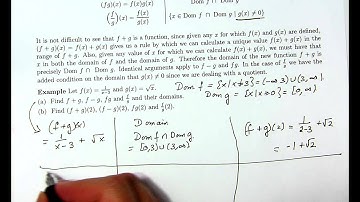 (fg)(x) = f(x)g(x)
(f/g)(x) = f(x)/g(x) {x ∈ Dom f ∩ Dom g | g(x) ≠ 0}
It is not difficult to see that f + g is a function, since given any x for which f(x) and g(x) are defined,
(f + g)(x) = f(x) + g(x) gives us a rule by which we can calculate a unique value f(x) + g(x) in the
range of f + g. Also, given any value of x for which we can calculate f(x) + g(x), we must have that
x is both the domain of f and the domain of g. Therefore the domain of the new function f + g is
precisely Dom f ∩ Dom g. Identical arguments apply to f − g and fg. In the case of f/g we have the
added condition on the domain that g(x) ≠ 0 since we are dealing with a quotient.
Example Let f(x) = 1/x−3 and g(x) = √x.
Dom f = {x | x ≠ 3} = (-∞, 3) ∪ (3, ∞)
(a) Find f + g, f − g, fg and f/g and their domains.
Dom g = {x | x ≥ 0} = [0, ∞)
(b) Find (f + g)(2), (f − g)(2), fg(2) and f/g(2).
(f+g)(x)
= 1/x-3 + √x
Domain
Dom f ∩ Dom g
= [0,3) ∪ (3, ∞)
(f+g)(2) = 1/2-3 + √2
= -1 + √2